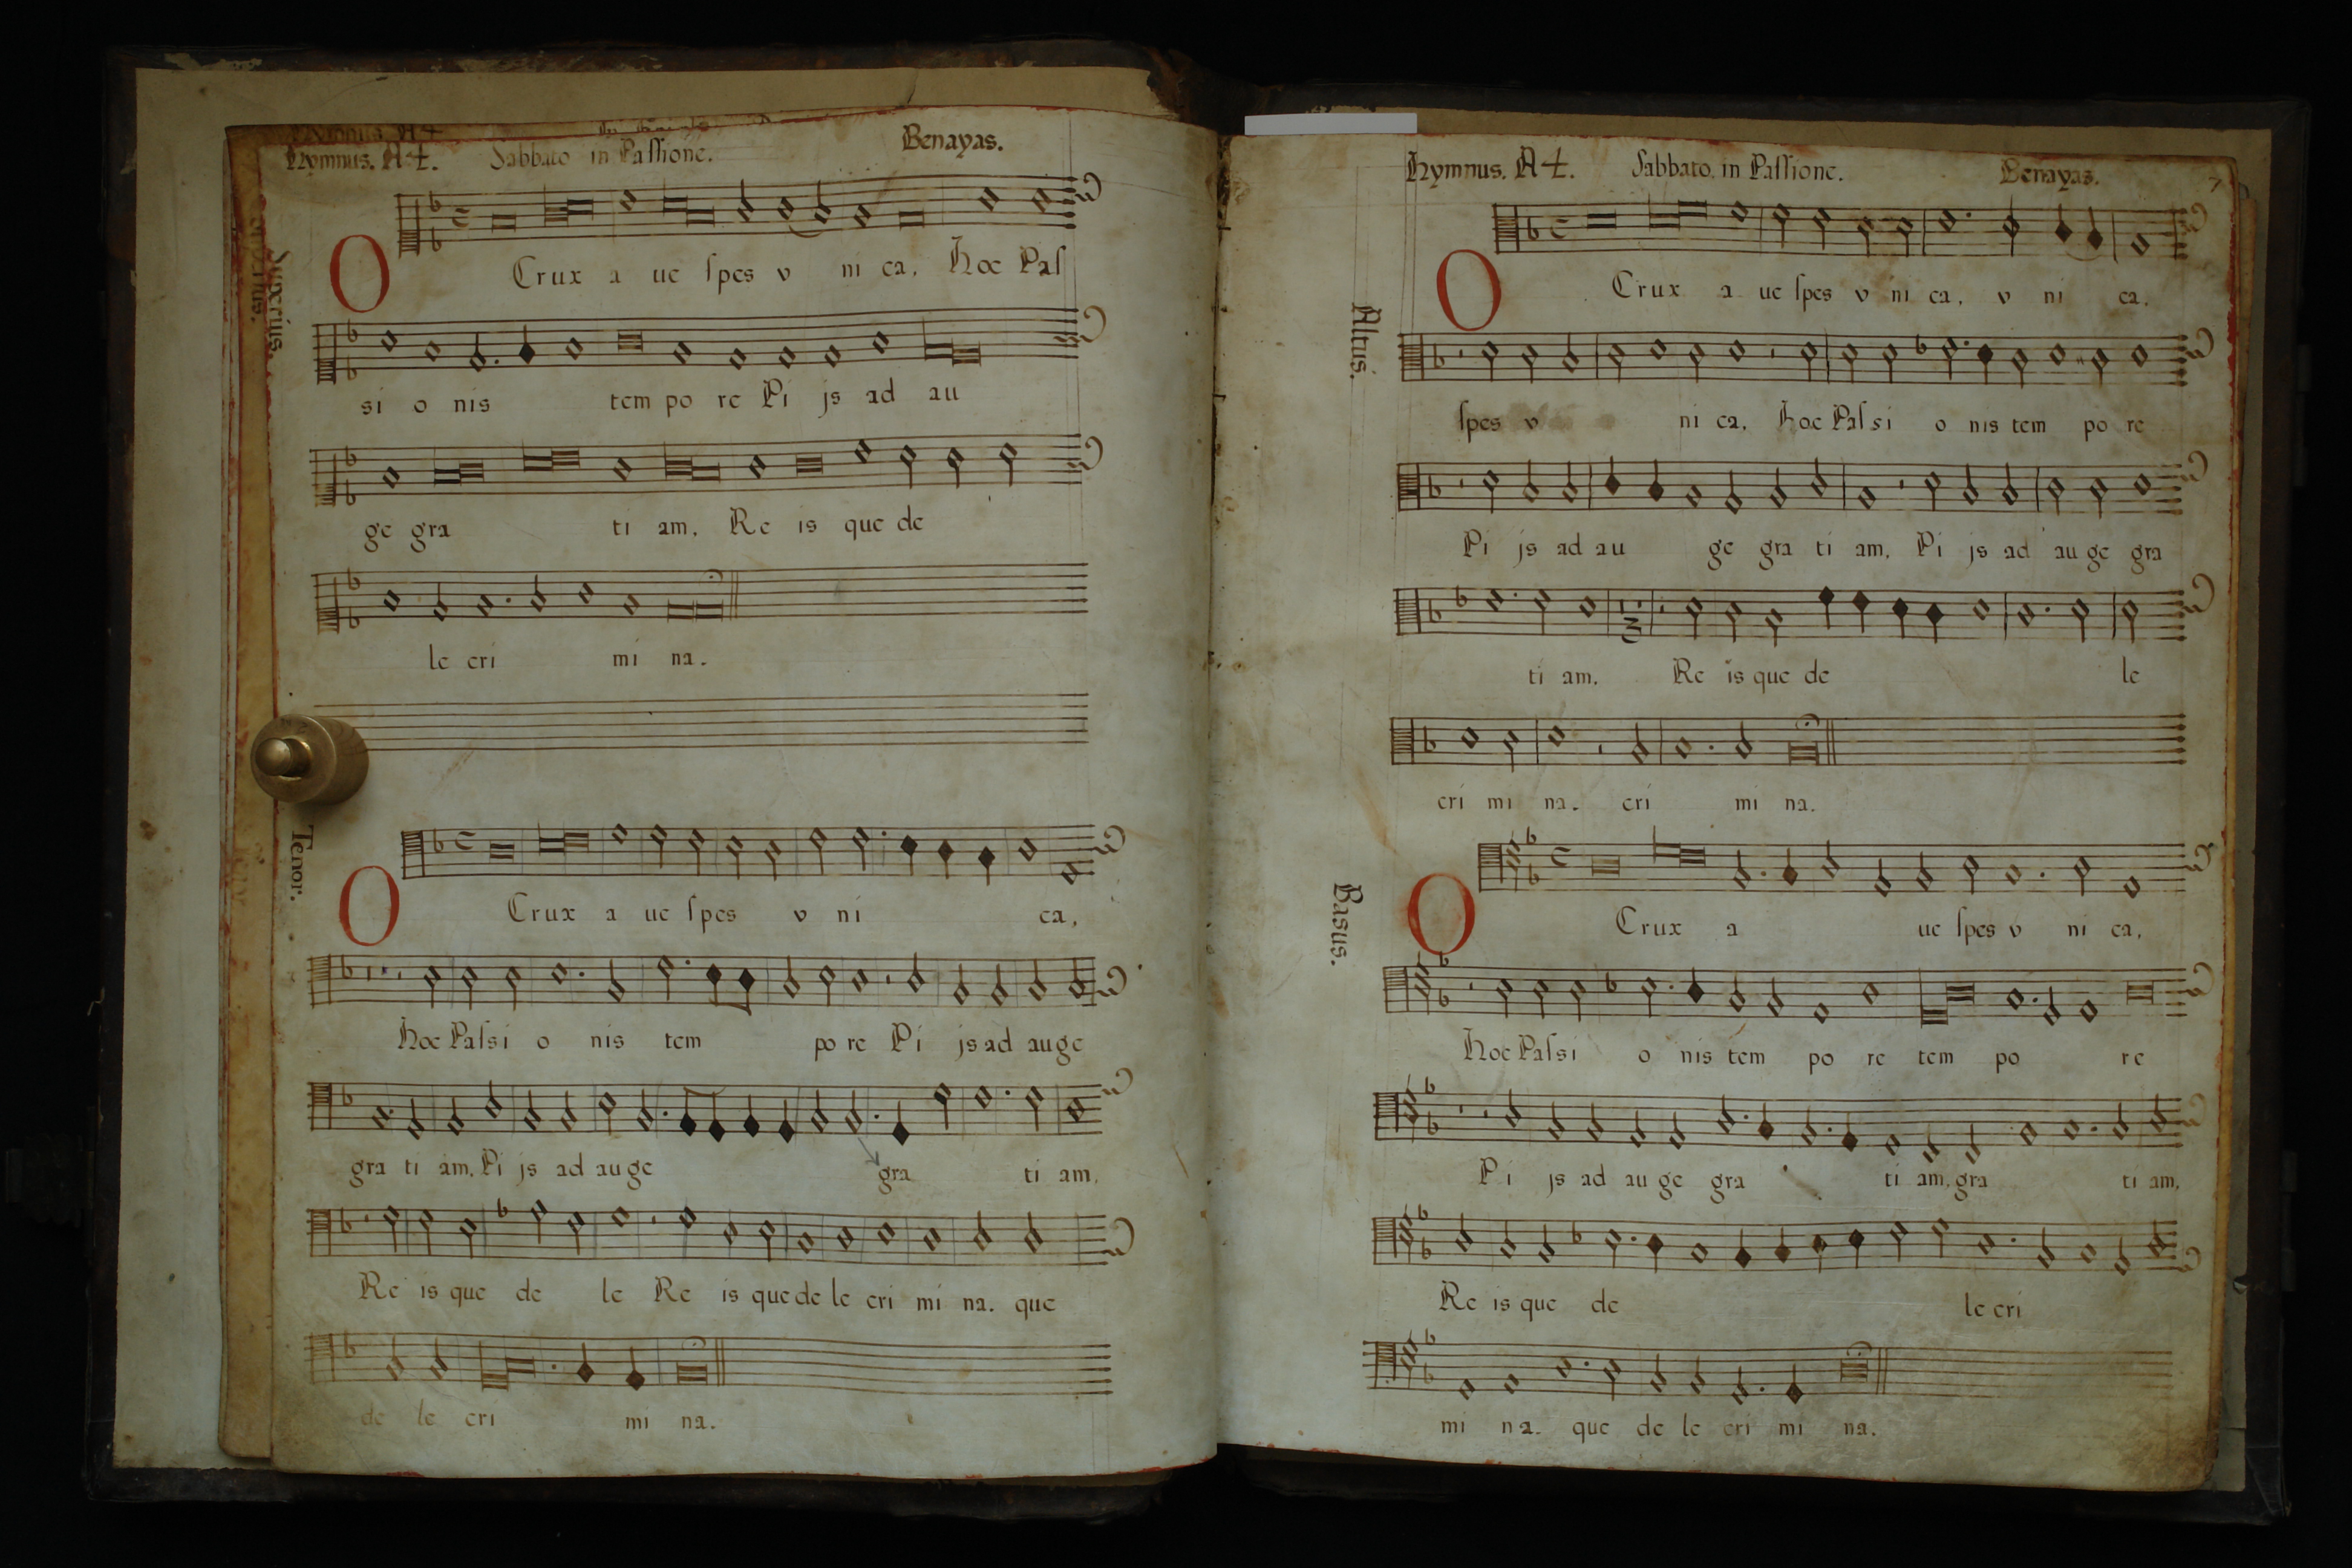 Hymnus. A 4. Sabbato in Paſsione. Benayas.
Superius.
O Crux a ue ſpes v ni ca, hoc Paſ
si o nis tem po re Pi js ad au
ge gra ti am, Re is que de
le cri mi na.
Tenor.
O Crux a ue ſpes v ni ca,
hoc Paſsi o nis tem po re Pi js ad auge
gra ti am, Pi js ad auge gra ti am,
Re is que de le Re is que de le cri mi na. que
de le cri mi na.
Hymnus. A 4. Sabbato. in Paſsione. Benayas. 7
Altus.
O Crux a ue ſpes v ni ca, v ni ca,
ſpes v ni ca, hoc Paſsi o nis tem po re
Pi js ad au ge gra ti am, Pi js ad au ge gra
ti am. Re is que de le
cri mi na. cri mi na.
Basus.
O Crux a ue ſpes v ni ca,
hoc Paſsi o nis tem po re tem po re
Pi js ad au ge gra ti am, gra ti am,
Re is que de le cri
mi na. que de le cri mi na.